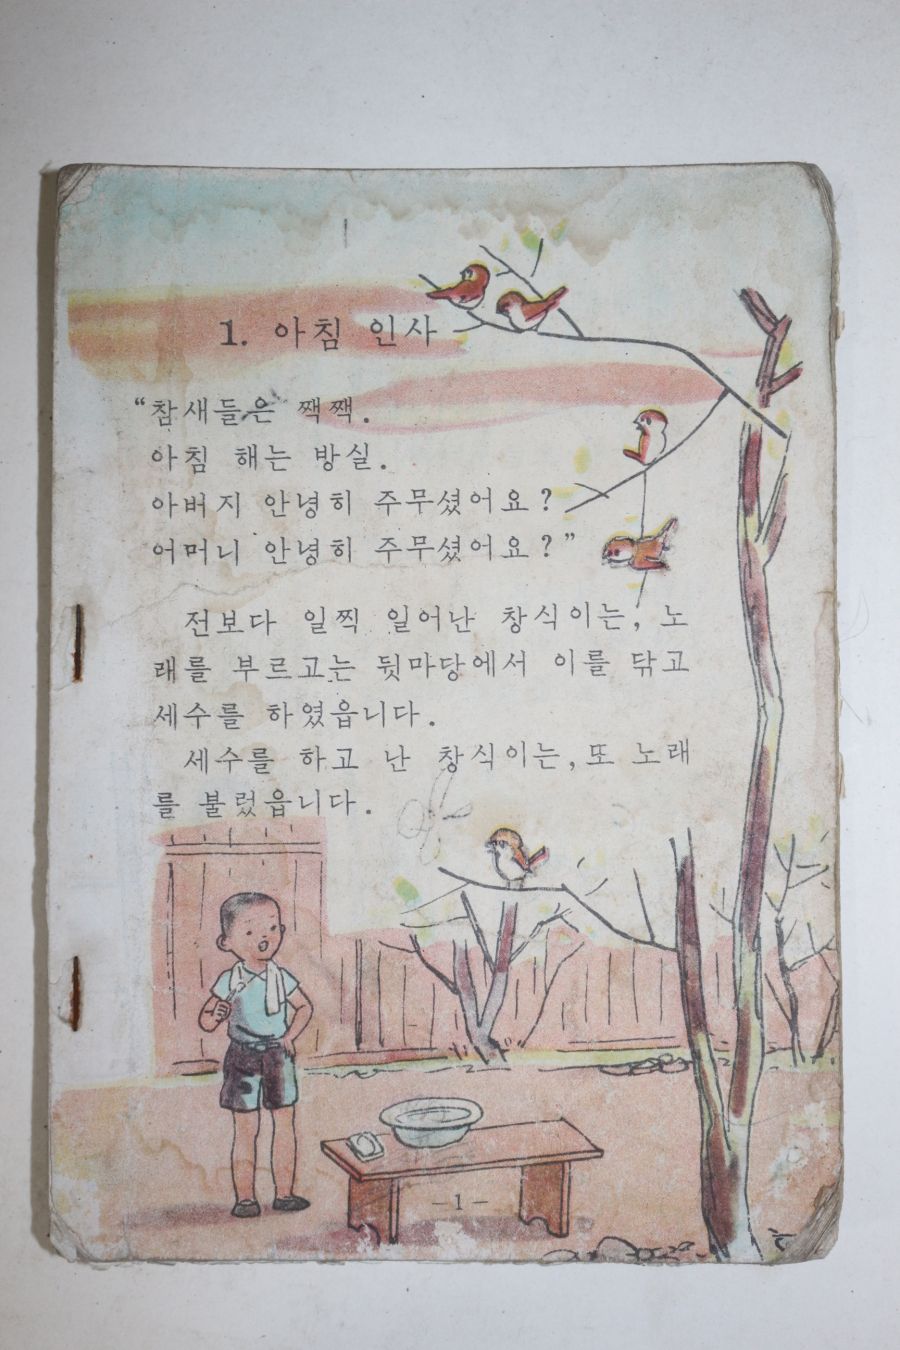 1. 아침 인사
“참새들은 짹짹.
아침 해는 방실.
아버지 안녕히 주무셨어요?
어머니 안녕히 주무셨어요?”
전보다 일찍 일어난 창식이는, 노
래를 부르고는 뒷마당에서 이를 닦고
세수를 하였읍니다.
세수를 하고 난 창식이는, 또 노래
를 불렀읍니다.
-1-